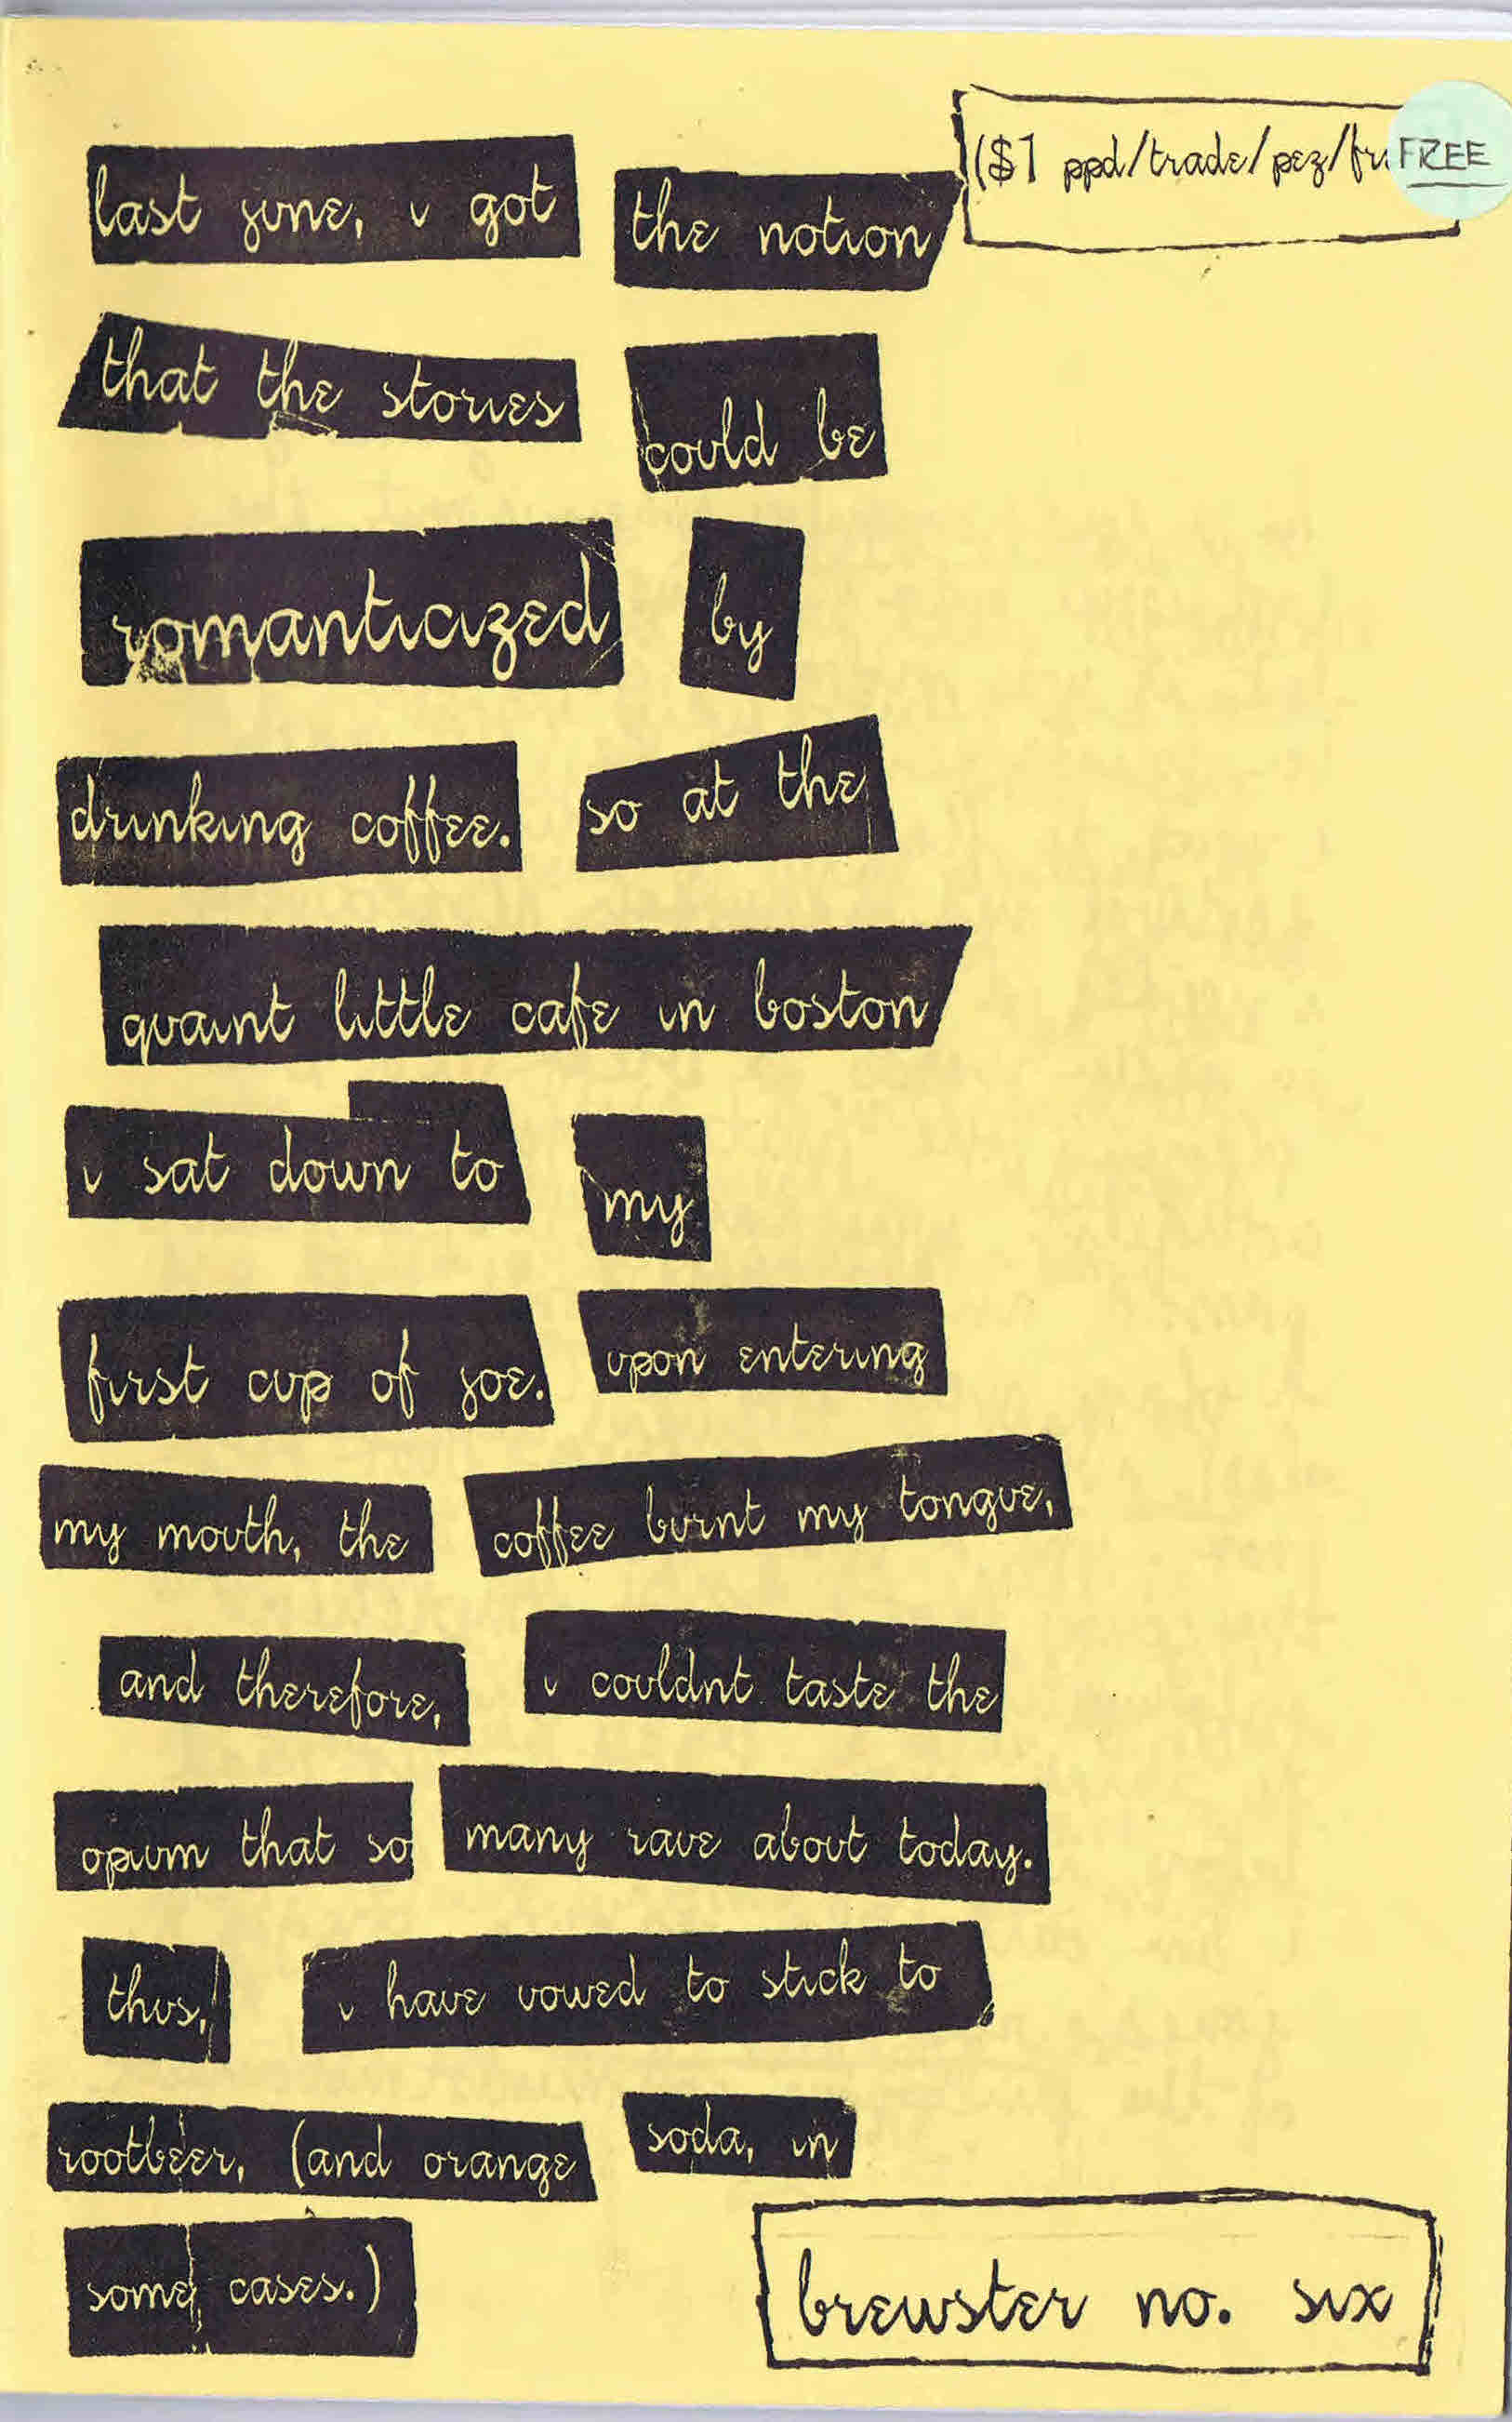 ($1 ppd/trade/pez/
FREE
last june, i got the notion
that the stories could be
romanticized by
drinking coffee. so at the
quaint little cafe in boston
i sat down to my
first cup of joe. upon entering
my mouth, the coffee burnt my tongue,
and therefore, i couldnt taste the
opium that so many rave about today.
thus, i have vowed to stick to
rootbeer, (and orange soda, in
some cases.)
brewster no. six